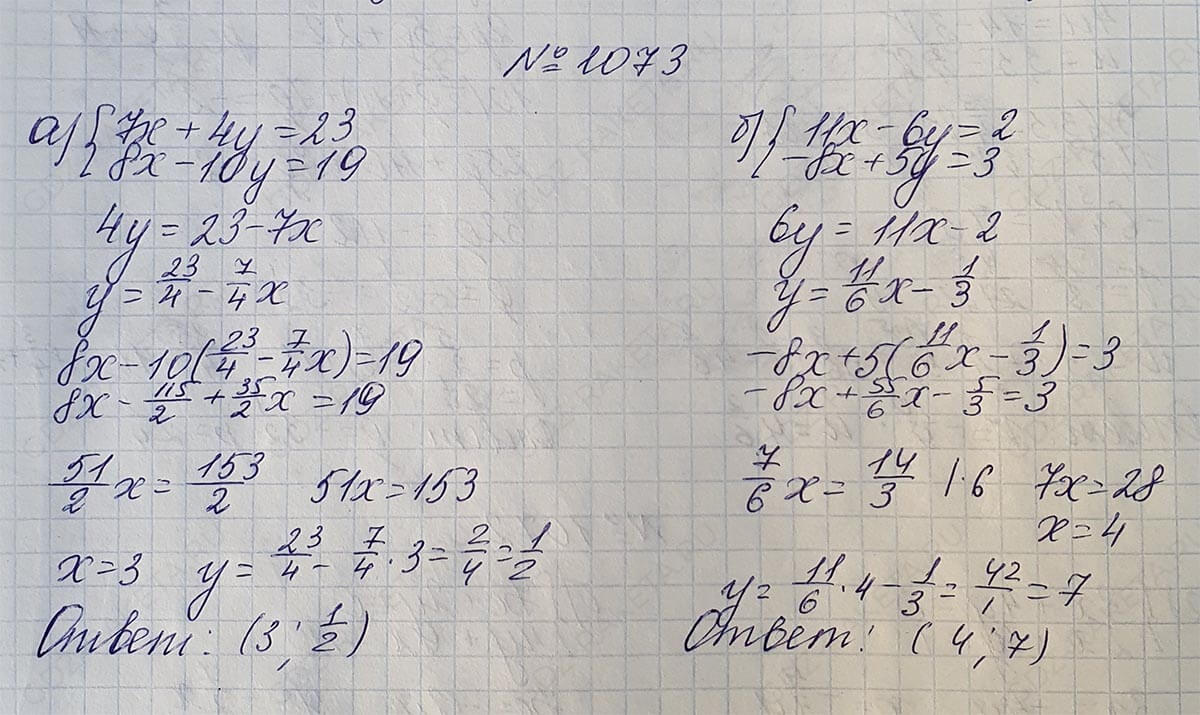 № 1073
а) { 7x + 4y = 23
8x - 10y = 19
4y = 23 - 7x
y = 23/4 - 7/4 x
8x - 10(23/4 - 7/4 x) = 19
8x - 115/2 + 35/2 x = 19
51/2 x = 153/2 51x = 153
x = 3 y = 23/4 - 7/4 · 3 = 2/4 = 1/2
Ответ: (3; 1/2)
б) { 11x - 6y = 2
-8x + 5y = 3
6y = 11x - 2
y = 11/6 x - 1/3
-8x + 5(11/6 x - 1/3) = 3
-8x + 55/6 x - 5/3 = 3
7/6 x = 14/3 | · 6 7x = 28
x = 4
y = 11/6 · 4 - 1/3 = 42/1 = 7
Ответ: (4; 7)